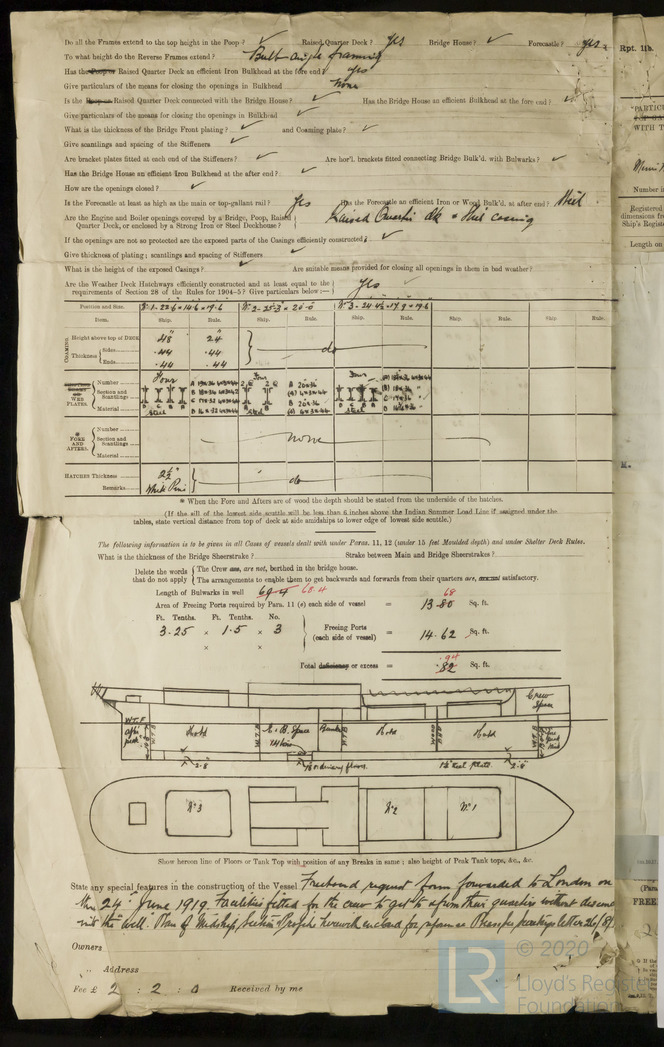 Do all the Frames extend to the top height in the Poop ? ✓ Raised Quarter Deck ? Yes Bridge House ? ✓ Forecastle ? Yes
To what height do the Reverse Frames extend ? Bulb angle framing
Has the Poop or Raised Quarter Deck an efficient Iron Bulkhead at the fore end ? Yes
Give particulars of the means for closing the openings in Bulkhead None
Is the Poop or Raised Quarter Deck connected with the Bridge House ? ✓ Has the Bridge House an efficient Bulkhead at the fore end ? ✓
Give particulars of the means for closing the openings in Bulkhead ✓
What is the thickness of the Bridge Front plating ? ✓ and Coaming plate ? ✓
Give scantlings and spacing of the Stiffeners ✓
Are bracket plates fitted at each end of the Stiffeners ? ✓ Are hor'l. brackets fitted connecting Bridge Bulk'd. with Bulwarks ? ✓
Has the Bridge House an efficient Iron Bulkhead at the after end ? ✓
How are the openings closed ? ✓
Is the Forecastle at least as high as the main or top-gallant rail ? Yes Has the Forecastle an efficient Iron or Wood Bulk'd. at after end ? Steel
Are the Engine and Boiler openings covered by a Bridge, Poop, Raised Quarter Deck, or enclosed by a Strong Iron or Steel Deckhouse ? Raised Quarter dk & Steel casing
If the openings are not so protected are the exposed parts of the Casings efficiently constructed ? ✓
Give thickness of plating ; scantlings and spacing of Stiffeners ✓
What is the height of the exposed Casings ? ✓ Are suitable means provided for closing all openings in them in bad weather ? ✓
Are the Weather Deck Hatchways efficiently constructed and at least equal to the
requirements of Section 28 of the Rules for 1904-5 ? Give particulars below :— Yes
Position and Size.
Item. Ship. Rule. Ship. Rule. Ship. Rule. Ship. Rule. Ship.
COAMING Height above top of DECK 48" 24" do
Thickness Sides .44 .44
Ends .44 .44
WEB PLATES. Number Four
Section and Scantlings
Material Steel
* FORE AND AFTERS. Number
Section and Scantlings none
Material
HATCHES Thickness 2½" do
Remarks White Pine
* When the Fore and Afters are of wood the depth should be stated from the underside of the hatches.
(If the sill of the lowest side scuttle will be less than 6 inches above the Indian Summer Load Line if assigned under the
tables, state vertical distance from top of deck at side amidships to lower edge of lowest side scuttle.)
The following information is to be given in all Cases of vessels dealt with under Paras. 11, 12 (under 15 feet Moulded depth) and under Shelter Deck Rules.
What is the thickness of the Bridge Sheerstrake ? Strake between Main and Bridge Sheerstrakes ?
Delete the words that do not apply
The Crew are, are not, berthed in the bridge house.
The arrangements to enable them to get backwards and forwards from their quarters are, are not satisfactory.
Length of Bulwarks in well 69.4 68.4
Area of Freeing Ports required by Para. 11 (e) each side of vessel = 13.80 68 Sq. ft.
Ft. Tenths. Ft. Tenths. No.
3.25 × 1.5 × 3 Freeing Ports (each side of vessel) = 14.62 Sq. ft.
× ×
Total deficiency or excess = .82 .94 Sq. ft.
Crew Space
W.T.F. Hold E. & B. Space Bunker Hold Hold
No 3 No 2 No 1
Show hereon line of Floors or Tank Top with position of any Breaks in same ; also height of Peak Tank tops, &c., &c.
State any special features in the construction of the Vessel Freeboard request form forwarded to London on
the 24th June 1919. Facilities fitted for the crew to get to & from their quarters without
into the well. Plan of Midship Section & Profile herewith enclosed for reference
Owners
„ Address
Fee £ 2 : 2 : 0 Received by me
Rpt. 11b.
WITH T
Number i
Registered
dimensions fr
Ship's Regist
Length on
(Para
FREE
LR
© 2020
Lloyd's Register
Foundation